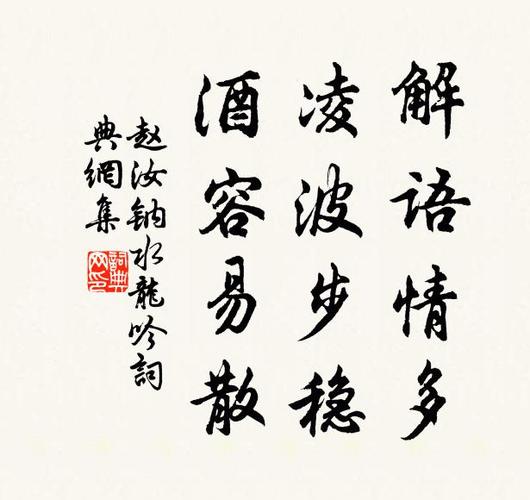 解语情多
凌波步稳
酒容易散
赵汝钠水龍吟詞
典網集
詞典網印